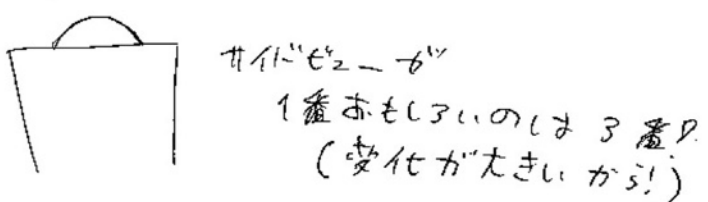 サイドビューが
1番おもしろいのは3番?
(変化が大きいから!)